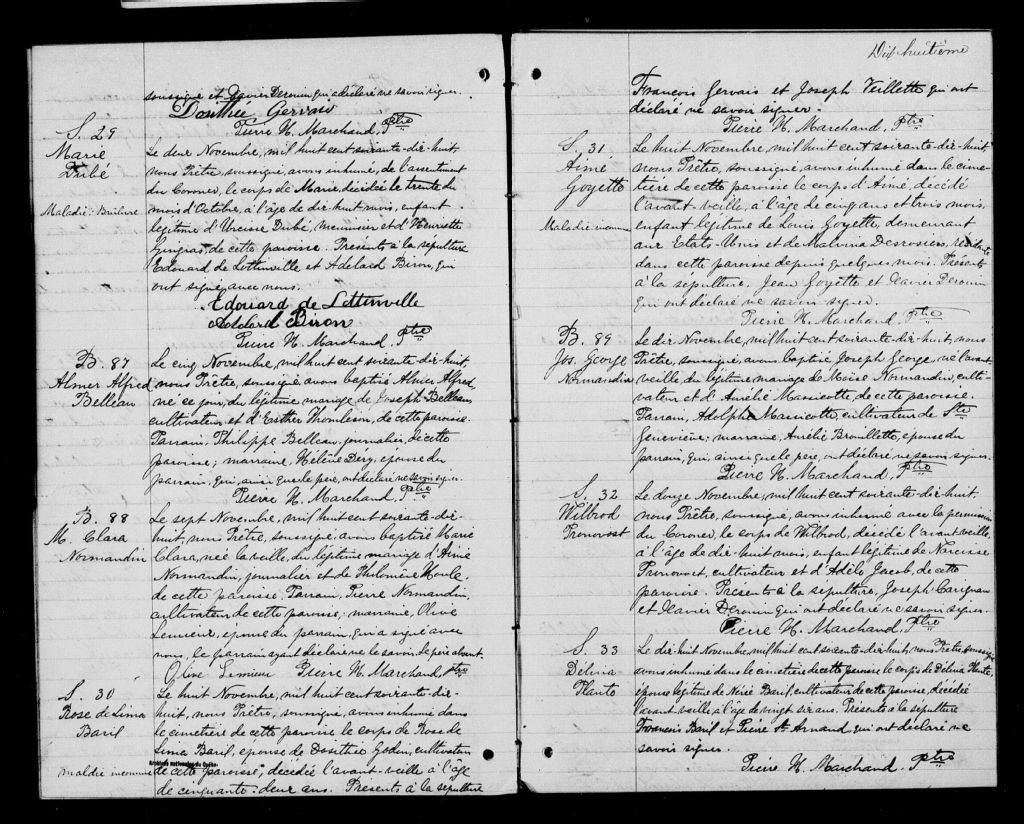 soussigné et Xavier Derouin qui a déclaré ne savoir signer.
Dosithée Gervais
Pierre H. Marchand, Ptre
S. 29
Marie
Dubé
Maladie: Brûlure
Le deux Novembre, mil huit cent soixante-dix-huit
nous Prêtre, soussigné, avons inhumé, de l'assentiment
du Coroner, le corps de Marie, décédée le trente du
mois d'Octobre, à l'âge de dix-huit mois, enfant
légitime d'Ulcisse Dubé, menuisier et d'Henriette
Gingras, de cette paroisse. Présents à la sépulture
Edouard de Lottinville et Adélard Biron, qui
ont signé avec nous.
Edouard de Lottinville
Adélard Biron
Pierre H. Marchand, Ptre
B. 87
Almer Alfred
Belleau
Le cinq Novembre, mil huit cent soixante-dix-huit,
nous Prêtre, soussigné, avons baptisé Almer Alfred,
né ce jour, du légitime mariage de Joseph Belleau,
cultivateur et d'Esther Thomleson, de cette paroisse.
Parrain, Philippe Belleau, journalier, de cette
paroisse; marraine, Hélène Déry, épouse du
parrain, qui, ainsi que le père, ont déclaré ne savoir signer.
Pierre H. Marchand, Ptre
B. 88
M. Clara
Normandin
Le sept Novembre, mil huit cent soixante-dix-
huit, nous Prêtre, soussigné, avons baptisé Marie
Clara, née la veille, du légitime mariage d'Aimé
Normandin, journalier et de Philomène Houle
de cette paroisse. Parrain, Pierre Normandin,
cultivateur de cette paroisse; marraine, Olive
Lemieux, épouse du parrain, qui a signé avec
nous, le parrain ayant déclaré ne le savoir, le père absent.
Olive Lemieux Pierre H. Marchand, Ptre
S. 30
Rose de Lima
Baril
maladie inconnue
Le huit Novembre, mil huit cent soixante-dix-
huit, nous Prêtre, soussigné, avons inhumé dans
le cimetière de cette paroisse le corps de Rose de
Lima Baril, épouse de Dosithée Godin, cultivateur
de cette paroisse, décédée l'avant-veille à l'âge
de cinquante-deux ans. Présents à la sépulture
Archives nationales du Québec
Dix huitième
François Gervais et Joseph Veillette qui ont
déclaré ne savoir signer.
Pierre H. Marchand, Ptre
S. 31
Aimé
Goyette
Maladie inconnue
Le huit Novembre, mil huit cent soixante-dix-huit
nous Prêtre, soussigné, avons inhumé dans le cime-
tière de cette paroisse le corps d'Aimé, décédé
l'avant-veille, à l'âge de cinq ans et trois mois,
enfant légitime de Louis Goyette, demeurant
aux Etats-Unis et de Malvina Desrosiers, résidante
dans cette paroisse depuis quelques mois. Présents
à la sépulture, Jean Goyette et Xavier Derouin
qui ont déclaré ne savoir signer.
Pierre H. Marchand, Ptre
B. 89
Jos. George
Normandin
Le dix Novembre, mil huit cent soixante-dix-huit, nous
Prêtre, soussigné, avons baptisé Joseph George, né l'avant
veille, du légitime mariage de Moïse Normandin, culti-
vateur et d'Aurélie Massicotte, de cette paroisse.
Parrain, Adolphe Massicotte, cultivateur de Ste
Geneviève; marraine, Aurélie Brouillette, épouse du
parrain, qui, ainsi que le père, ont déclaré ne savoir signer.
Pierre H. Marchand, Ptre
S. 32
Wilbrod
Pronovost
Le douze Novembre, mil huit cent soixante-dix-huit
nous Prêtre, soussigné, avons inhumé avec la permission
du Coroner, le corps de Wilbrod, décédé l'avant-veille,
à l'âge de dix-huit mois, enfant légitime de Narcisse
Pronovost, cultivateur et d'Adèle Jacob, de cette
paroisse. Présents à la sépulture, Joseph Carignan
et Xavier Derouin qui ont déclaré ne savoir signer.
Pierre H. Marchand, Ptre
S. 33
Délinia
Plante
Le dix-huit Novembre, mil huit cent soixante-dix-huit, nous Prêtre, soussigné,
avons inhumé dans le cimetière de cette paroisse le corps de Délinia Plante,
épouse légitime de Baril, cultivateur de cette paroisse, décédée
l'avant-veille à l'âge de vingt six ans. Présents à la sépulture
François Baril et Pierre St Arnaud qui ont déclaré ne
savoir signer.
Pierre H. Marchand, Ptre